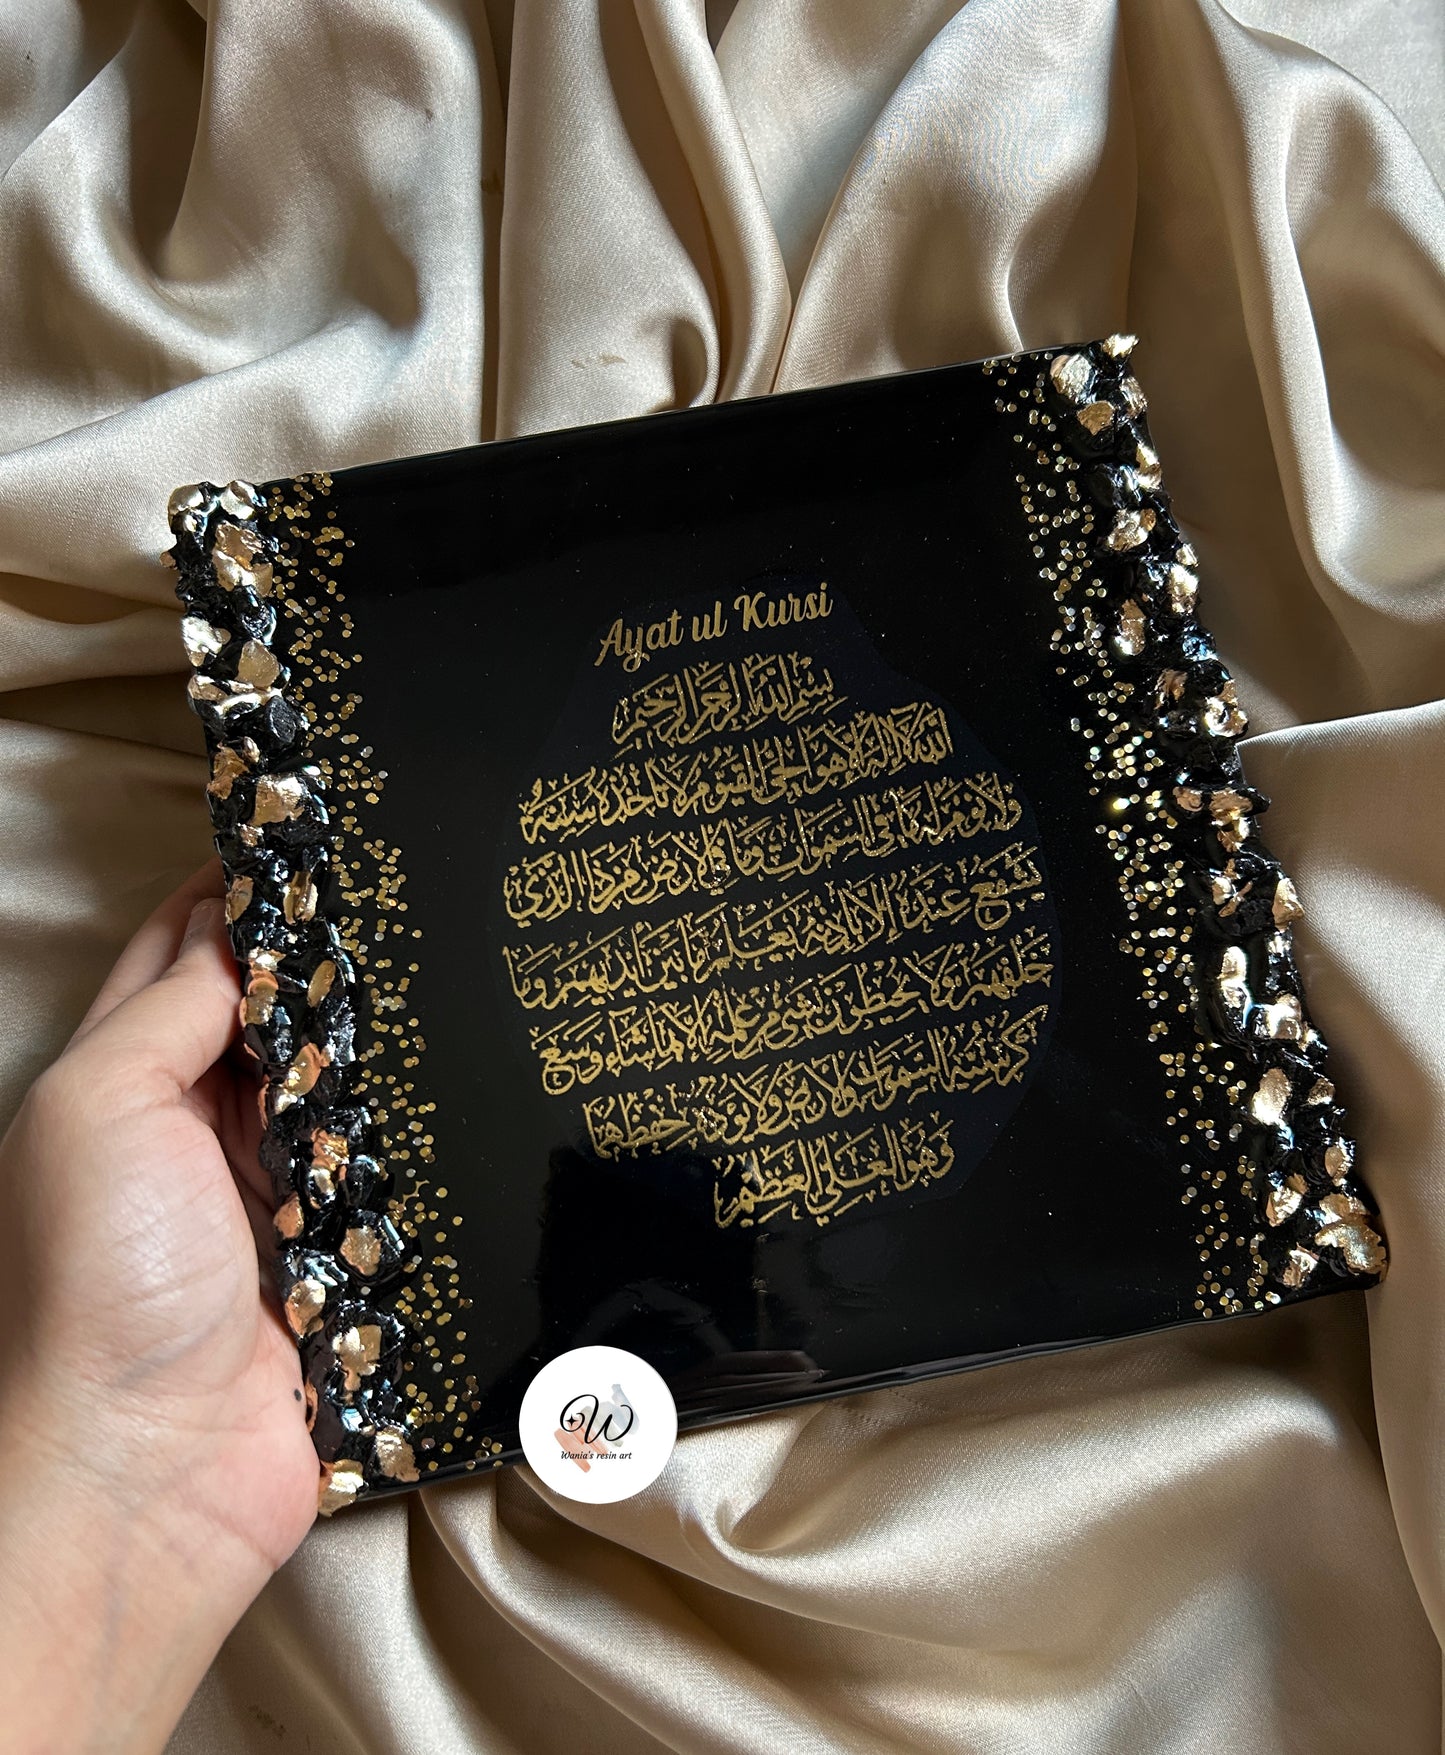 Ayat ul Kursi
بسم الله الرحمن الرحيم
الله لا اله الا هو الحي القيوم لا تاخذه سنة
ولا نوم له ما في السموات وما في الارض من ذا الذي
يشفع عنده الا باذنه يعلم ما بين ايديهم وما
خلفهم ولا يحيطون بشيء من علمه الا بما شاء وسع
كرسيه السموات والارض ولا يؤده حفظهما
وهو العلي العظيم
W
Wania's resin art